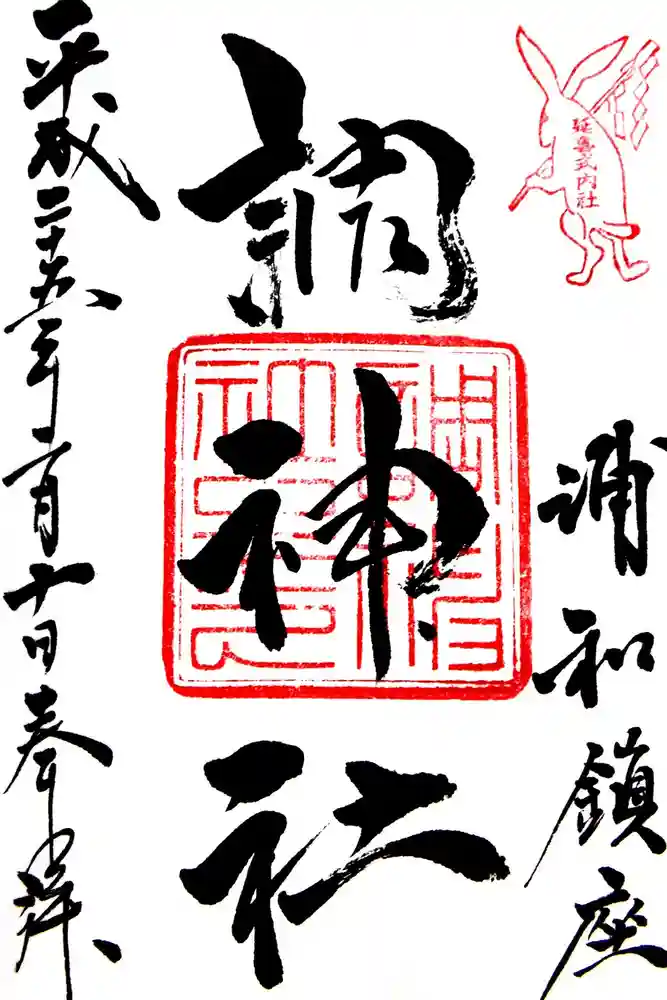 延喜式内社
浦和鎮座
調神社
平成二十五年二月十日奉拝